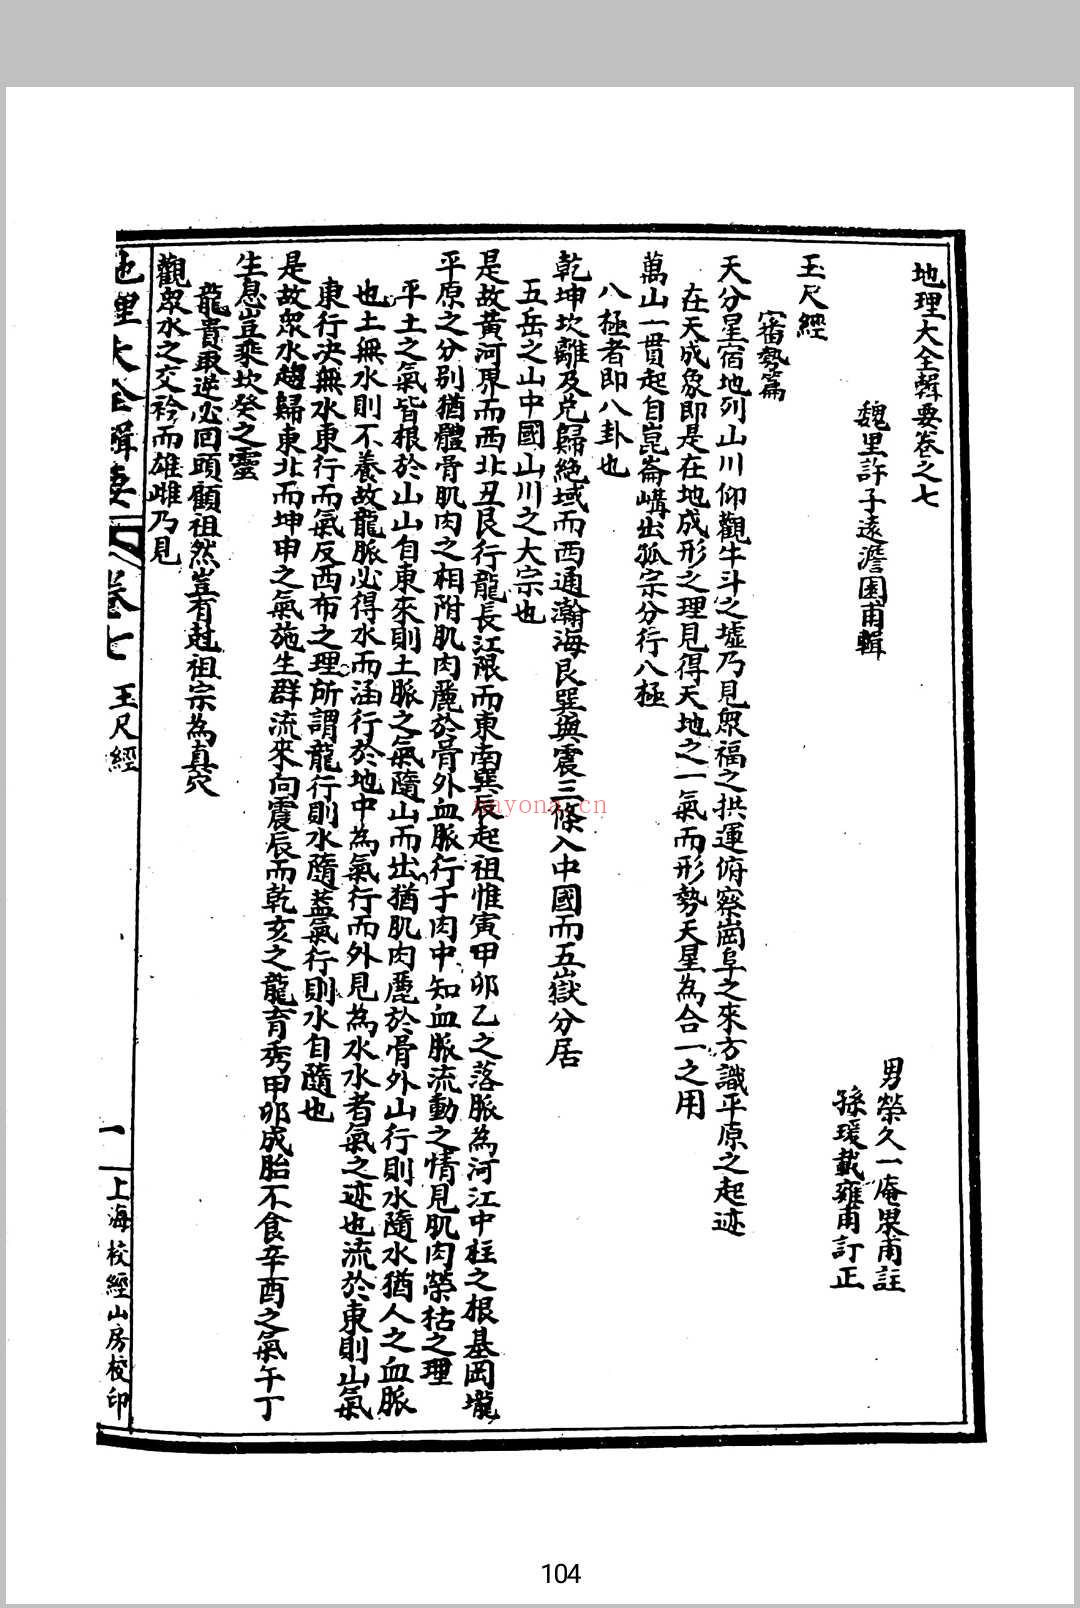 地理大全輯要卷之七
魏里許子遠澹園甫輯
男榮久一庵果甫註
孫瑗載雍甫訂正
玉尺經
審勢篇
天分星宿地列山川仰觀牛斗之墟乃見眾福之拱運俯察崗阜之來方識平原之起迹
在天成象即是在地成形之理見得天地之一氣而形勢天星為合一之用
萬山一貫起自崑崙嶹出孤宗分行八極
八極者即八卦也
乾坤坎離及兌歸絶域而西通瀚海艮巽與震三條入中國而五嶽分居
五岳之山中國山川之大宗也
是故黄河界而西北丑艮行龍長江限而東南巽辰起祖惟寅甲卯乙之落脈為河江中柱之根基岡壠
平原之分别猶體骨肌肉之相附肌肉麗於骨外血脈行于肉中知血脈流動之情見肌肉榮枯之理
平土之氣皆根於山山自東來則土脈之氣隨山而出猶肌肉麗於骨外山行則水隨水猶人之血脈
也土無水則不養故龍脈必得水而涵行於地中為氣行而外見為水水者氣之迹也流於東則山氣
東行决無水東行而氣反西布之理所謂龍行則水隨蓋氣行則水自隨也
是故眾水趨歸東北而坤申之氣施生群流來向震辰而乾亥之龍育秀甲卯成胎不食辛酉之氣午丁
生息豈乘坎癸之靈
龍貴取逆必回頭顧祖然豈有尅祖宗為真穴
觀眾水之交衿而雄雌乃見
地理大全輯要
卷七
玉尺經
一
上海校經山房校印
nayona.cn
104